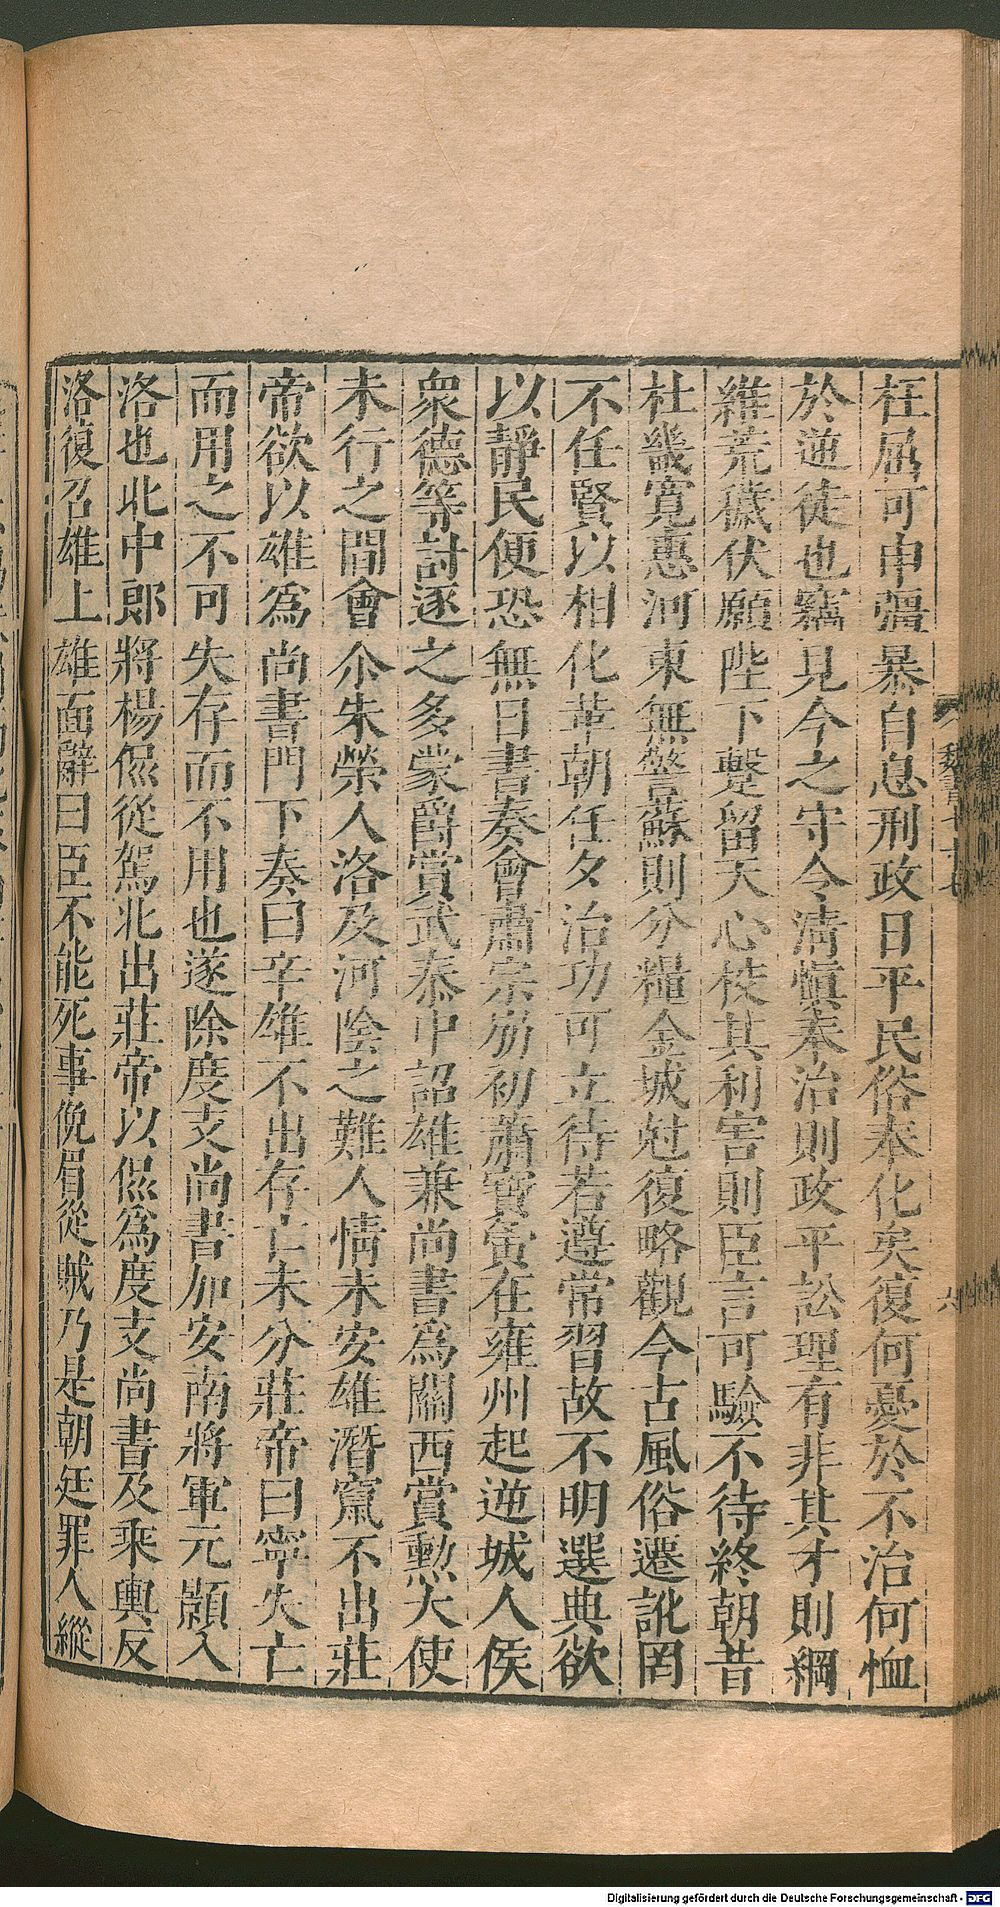 枉屈可申彊暴自息刑政日平民俗奉化矣復何憂於不治何恤
於逆徒也竊見今之守令清愼奉治則政平訟理有非其才則綱
維荒穢伏願陛下蹔留天心校其利害則臣言可驗不待終朝昔
杜畿寬惠河東無警蘇則分糧金城尅復略觀今古風俗遷訛罔
不任賢以相化革朝任夕治功可立待若遵常習故不明選典欲
以靜民便恐無日書奏會肅宗崩初蕭寶夤在雍州起逆城人侯
衆德等討逐之多蒙爵賞武泰中詔雄兼尚書爲關西賞勲大使
未行之間會尒朱榮入洛及河陰之難人情未安雄潛竄不出莊
帝欲以雄爲尚書門下奏曰辛雄不出存亡未分莊帝曰寧失亡
而用之不可失存而不用也遂除度支尚書加安南將軍元顥入
洛也北中郎將楊偘從駕北出莊帝以偘爲度支尚書及乘輿反
洛復召雄上雄面辭曰臣不能死事俛眉從賊乃是朝廷罪人縱
魏書七十七
六
Digitalisierung gefördert durch die Deutsche Forschungsgemeinschaft - DFG